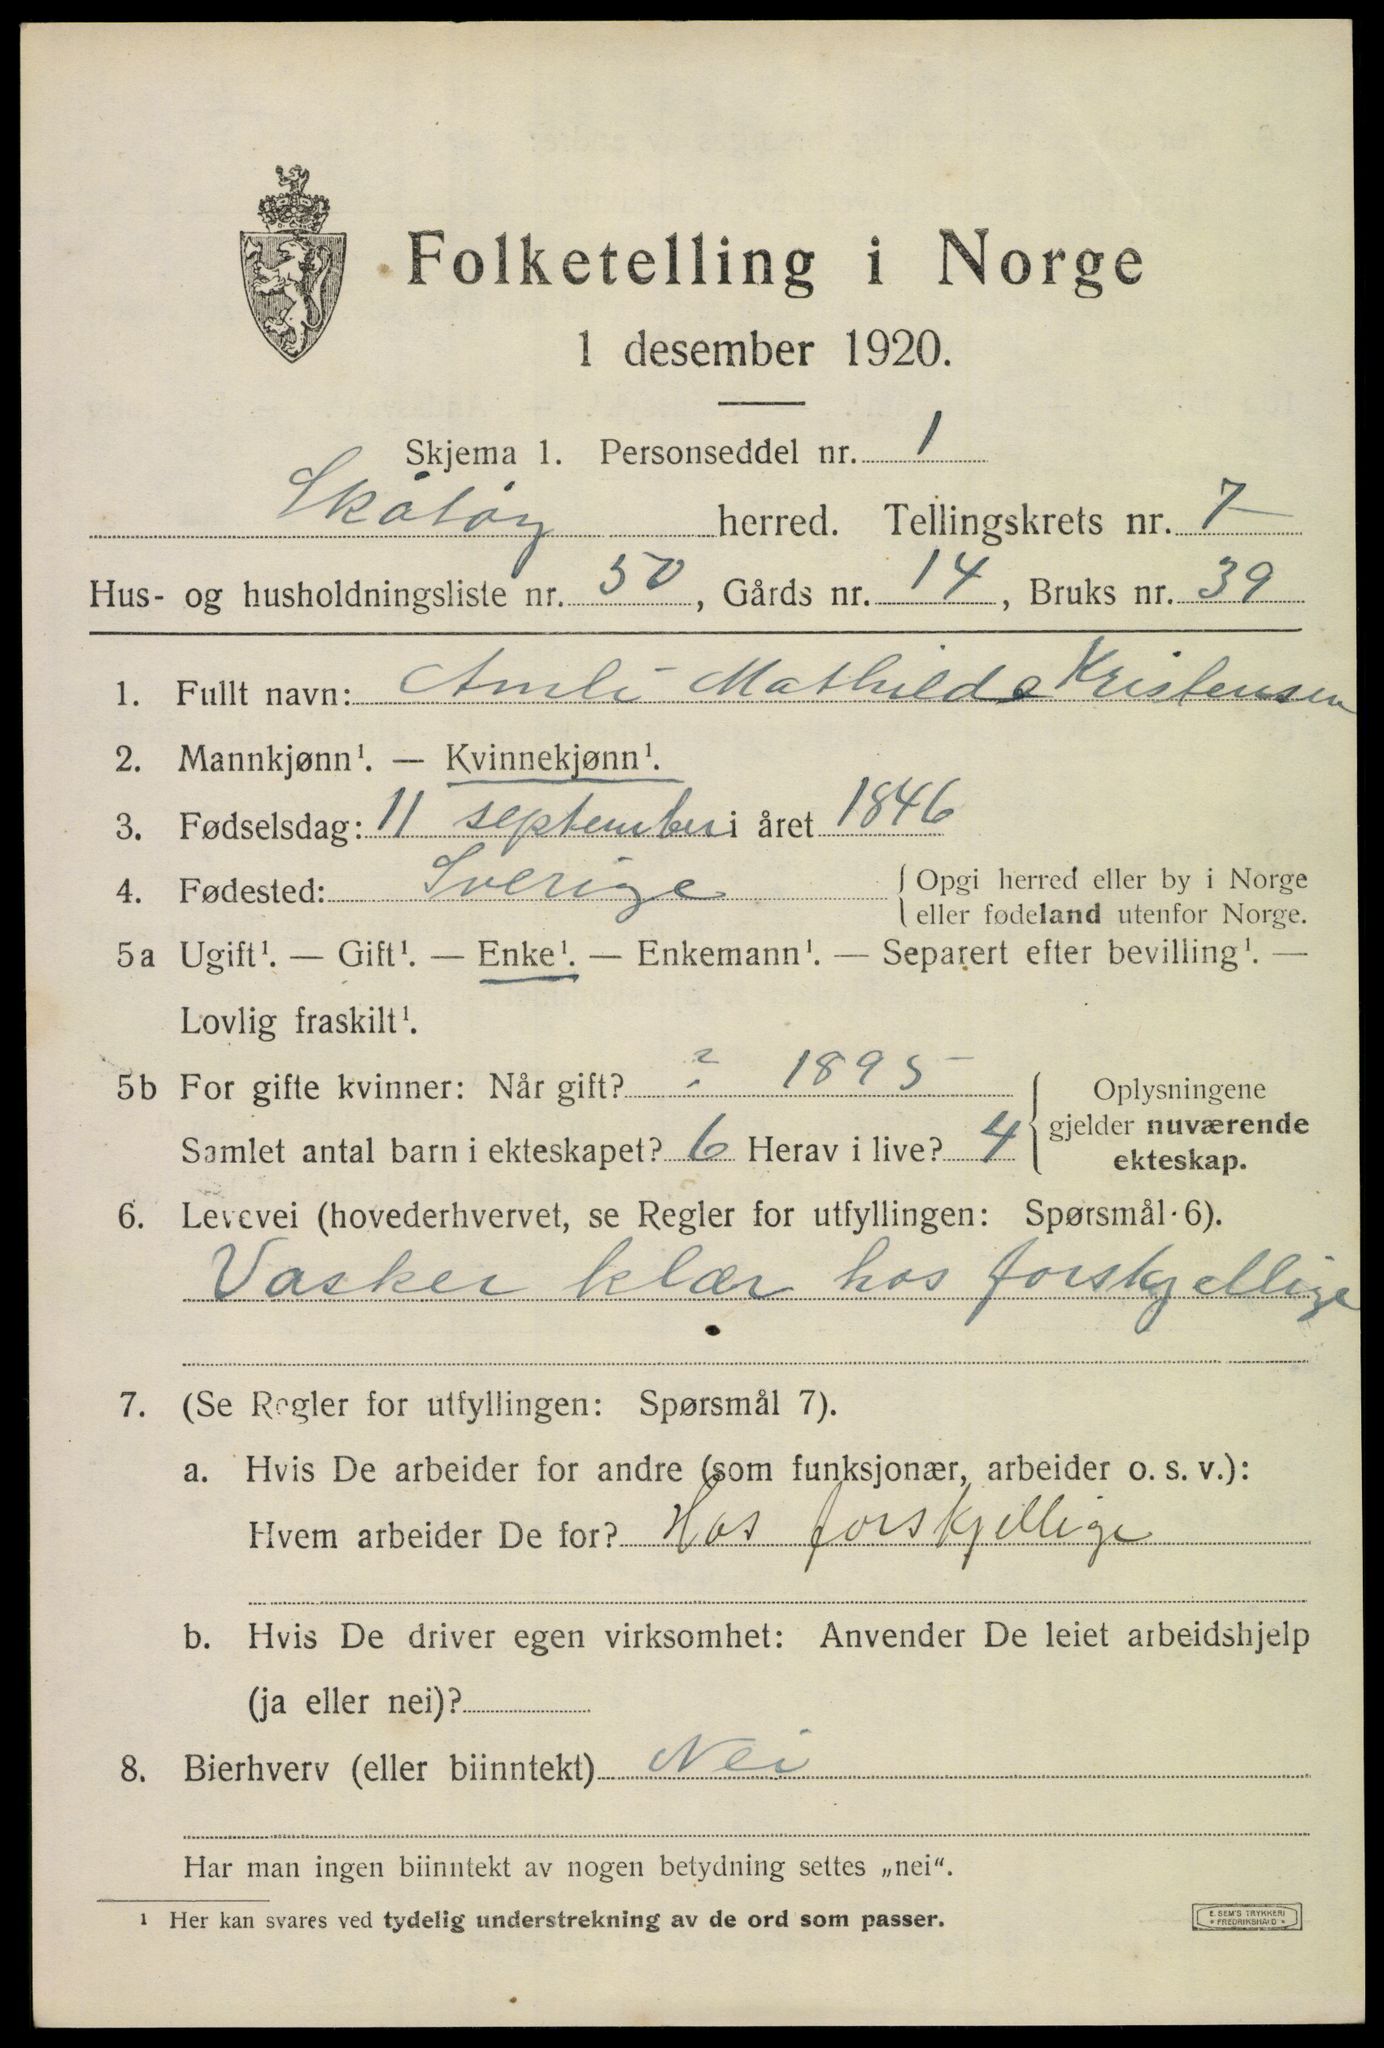 Folketelling i Norge
1 desember 1920.
Skjema 1. Personseddel nr. 1
Skåtøy herred. Tellingskrets nr. 7
Hus- og husholdningsliste nr. 50, Gårds nr. 14, Bruks nr. 39
1. Fullt navn: Amli Mathilde Kristensen
2. Mannkjønn¹. — Kvinnekjønn¹.
3. Fødselsdag: 11 september i året 1846
4. Fødested: Sverige { Opgi herred eller by i Norge
eller fødeland utenfor Norge.
5a Ugift¹. — Gift¹. — Enke¹. — Enkemann¹. — Separert efter bevilling¹. —
Lovlig fraskilt¹.
5b For gifte kvinner: Når gift? ? 1895 Oplysningene
gjelder nuværende
Samlet antal barn i ekteskapet? 6 Herav i live? 4 ekteskap.
6. Levevei (hovederhvervet, se Regler for utfyllingen: Spørsmål 6).
Vasker klær hos forskjellige
7. (Se Regler for utfyllingen: Spørsmål 7).
a. Hvis De arbeider for andre (som funksjonær, arbeider o. s. v.):
Hvem arbeider De for? Hos forskjellige
b. Hvis De driver egen virksomhet: Anvender De leiet arbeidshjelp
(ja eller nei)?
8. Bierhverv (eller biinntekt) Nei
Har man ingen biinntekt av nogen betydning settes „nei“.
¹ Her kan svares ved tydelig understrekning av de ord som passer.
E. SEM'S TRYKKERI
* FREDRIKSHALD *